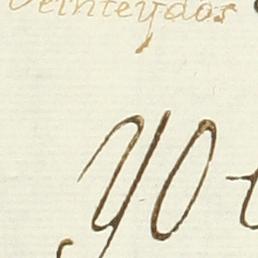 Veinteydos
yo